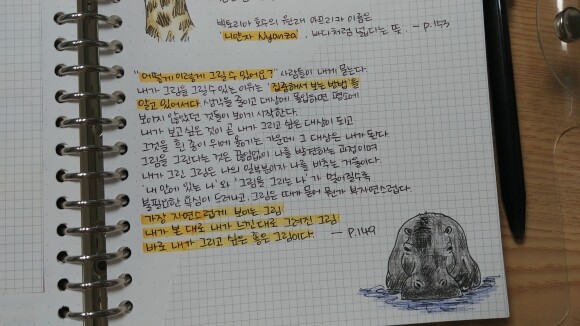 빅토리아 호수의 원래 아프리카 이름은
'니안자 Nyanza', 바다처럼 넓다는 뜻. - p.153
"어떻게 이렇게 그릴 수 있어요?" 사람들이 내게 묻는다.
내가 그림을 그릴 수 있는 이유는 '집중해서 보는 방법'을
알고 있어서다. 생각을 줄이고 대상에 몰입하면 평소에
보이지 않았던 것들이 보이기 시작한다.
내가 보고 싶은 것이 곧 내가 그리고 싶은 대상이 되고
그것을 흰 종이 위에 옮기는 가운데 그 대상은 내가 된다.
그림을 그린다는 것은 끊임없이 나를 발견하는 과정이며
내가 그린 그림은 나의 일부분이자 나를 비추는 거울이다.
'내 안에 있는 나'와 '그림을 그리는 나'가 멀어질수록
불필요한 욕심이 드러나고, 그림은 때가 묻어 뭔가 부자연스럽다.
가장 자연스럽게 보이는 그림
내가 본 대로 내가 느낀 대로 그려진 그림
바로 내가 그리고 싶은 좋은 그림이다. - p.149